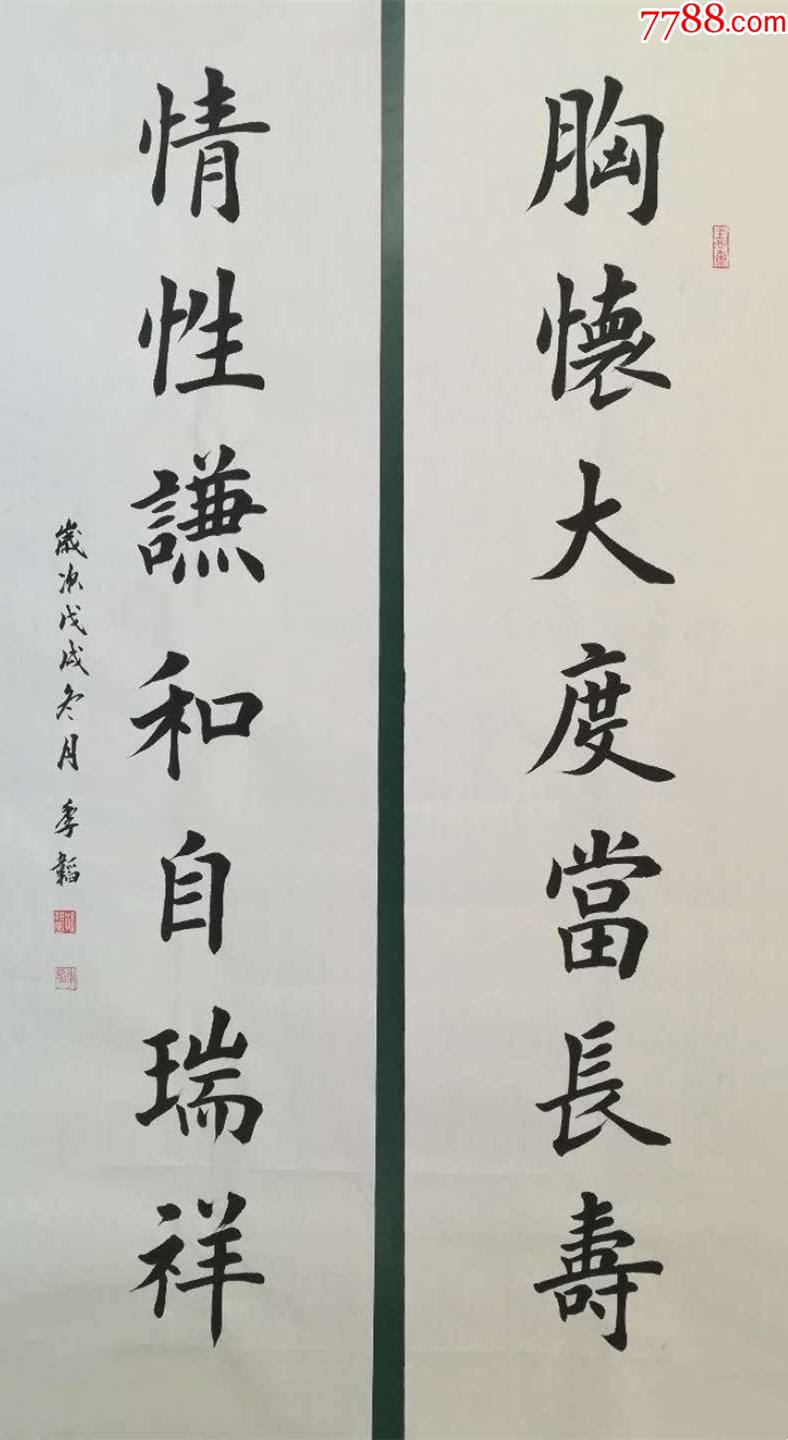 7788.com
胸懷大度當長壽
情性謙和自瑞祥
歲次戊戌冬月 季韜